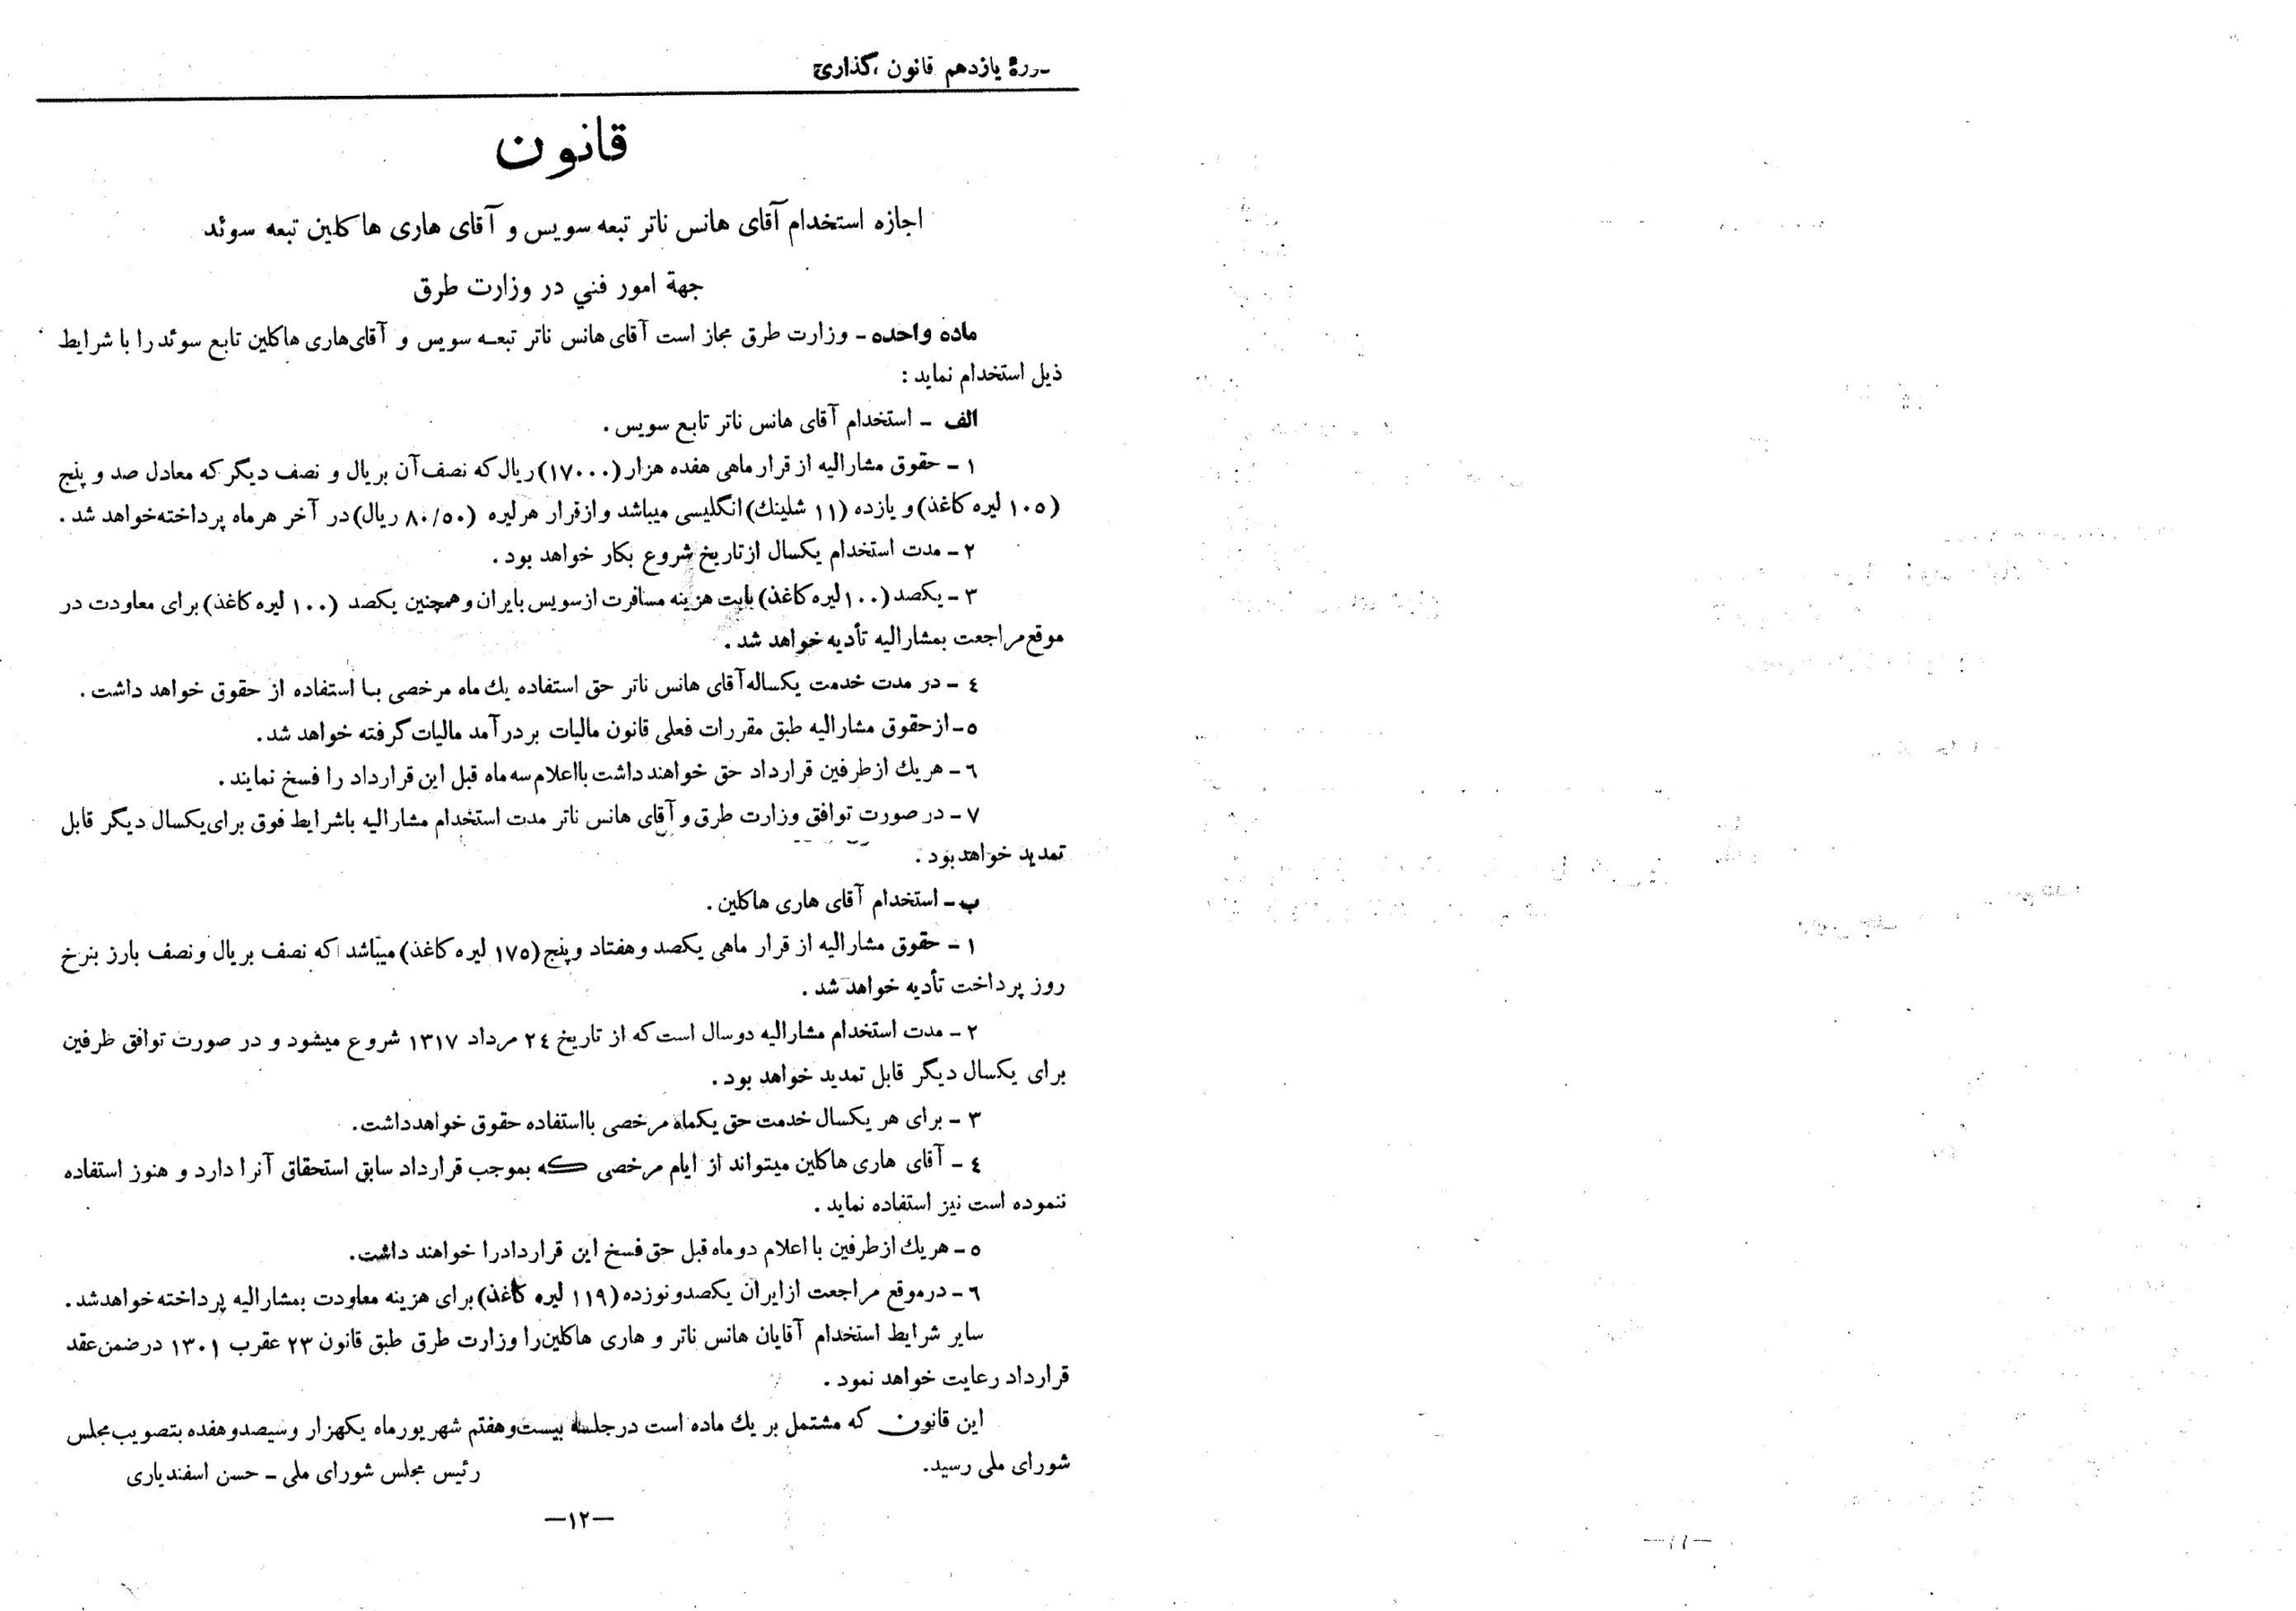 دورهٔ یازدهم قانون گذاری
قانون
اجازه استخدام آقای هانس ناتر تبعه سویس و آقای هاری هاکلین تبعه سوئد
جهة امور فني در وزارت طرق
ماده واحده - وزارت طرق مجاز است آقای هانس ناتر تبعه سویس و آقای هاری هاکلین تابع سوئد را با شرایط
ذیل استخدام نماید :
الف - استخدام آقای هانس ناتر تابع سویس .
۱ - حقوق مشارالیه از قرار ماهی هفده هزار (۱۷۰۰۰) ریال که نصف آن بریال و نصف دیگر که معادل صد و پنج
(۱۰۵ لیره کاغذ) و یازده (۱۱ شلینك) انگلیسی میباشد و از قرار هر لیره (۸۰/۵۰ ریال) در آخر هر ماه پرداخته خواهد شد .
۲ - مدت استخدام یکسال از تاریخ شروع بکار خواهد بود .
۳ - یکصد (۱۰۰ لیره کاغذ) بابت هزینه مسافرت از سویس بایران و همچنین یکصد (۱۰۰ لیره کاغذ) برای معاودت در
موقع مراجعت بمشارالیه تأدیه خواهد شد .
٤ - در مدت خدمت یکساله آقای هانس ناتر حق استفاده یك ماه مرخصی با استفاده از حقوق خواهد داشت .
۵ - از حقوق مشارالیه طبق مقررات فعلی قانون مالیات بر درآمد مالیات گرفته خواهد شد .
٦ - هر یك از طرفین قرارداد حق خواهند داشت با اعلام سه ماه قبل این قرارداد را فسخ نمایند .
۷ - در صورت توافق وزارت طرق و آقای هانس ناتر مدت استخدام مشارالیه با شرایط فوق برای یکسال دیگر قابل
تمدید خواهد بود .
ب - استخدام آقای هاری هاکلین .
۱ - حقوق مشارالیه از قرار ماهی یکصد و هفتاد و پنج (۱۷۵ لیره کاغذ) میباشد که نصف بریال و نصف بارز بنرخ
روز پرداخت تأدیه خواهد شد .
۲ - مدت استخدام مشارالیه دو سال است که از تاریخ ۲٤ مرداد ۱۳۱۷ شروع میشود و در صورت توافق طرفین
برای یکسال دیگر قابل تمدید خواهد بود .
۳ - برای هر یکسال خدمت حق یکماه مرخصی با استفاده حقوق خواهد داشت .
٤ - آقای هاری هاکلین میتواند از ایام مرخصی که بموجب قرارداد سابق استحقاق آنرا دارد و هنوز استفاده
ننموده است نیز استفاده نماید .
۵ - هر یك از طرفین با اعلام دو ماه قبل حق فسخ این قرارداد را خواهند داشت .
٦ - در موقع مراجعت از ایران یکصد و نوزده (۱۱۹ لیره کاغذ) برای هزینه معاودت بمشارالیه پرداخته خواهد شد .
سایر شرایط استخدام آقایان هانس ناتر و هاری هاکلین را وزارت طرق طبق قانون ۲۳ عقرب ۱۳۰۱ در ضمن عقد
قرارداد رعایت خواهد نمود .
این قانون که مشتمل بر یك ماده است در جلسه بیست و هفتم شهریور ماه یکهزار و سیصد و هفده بتصویب مجلس
شورای ملی رسید .
رئیس مجلس شورای ملی - حسن اسفندیاری
—۱۲—
—۱۱—